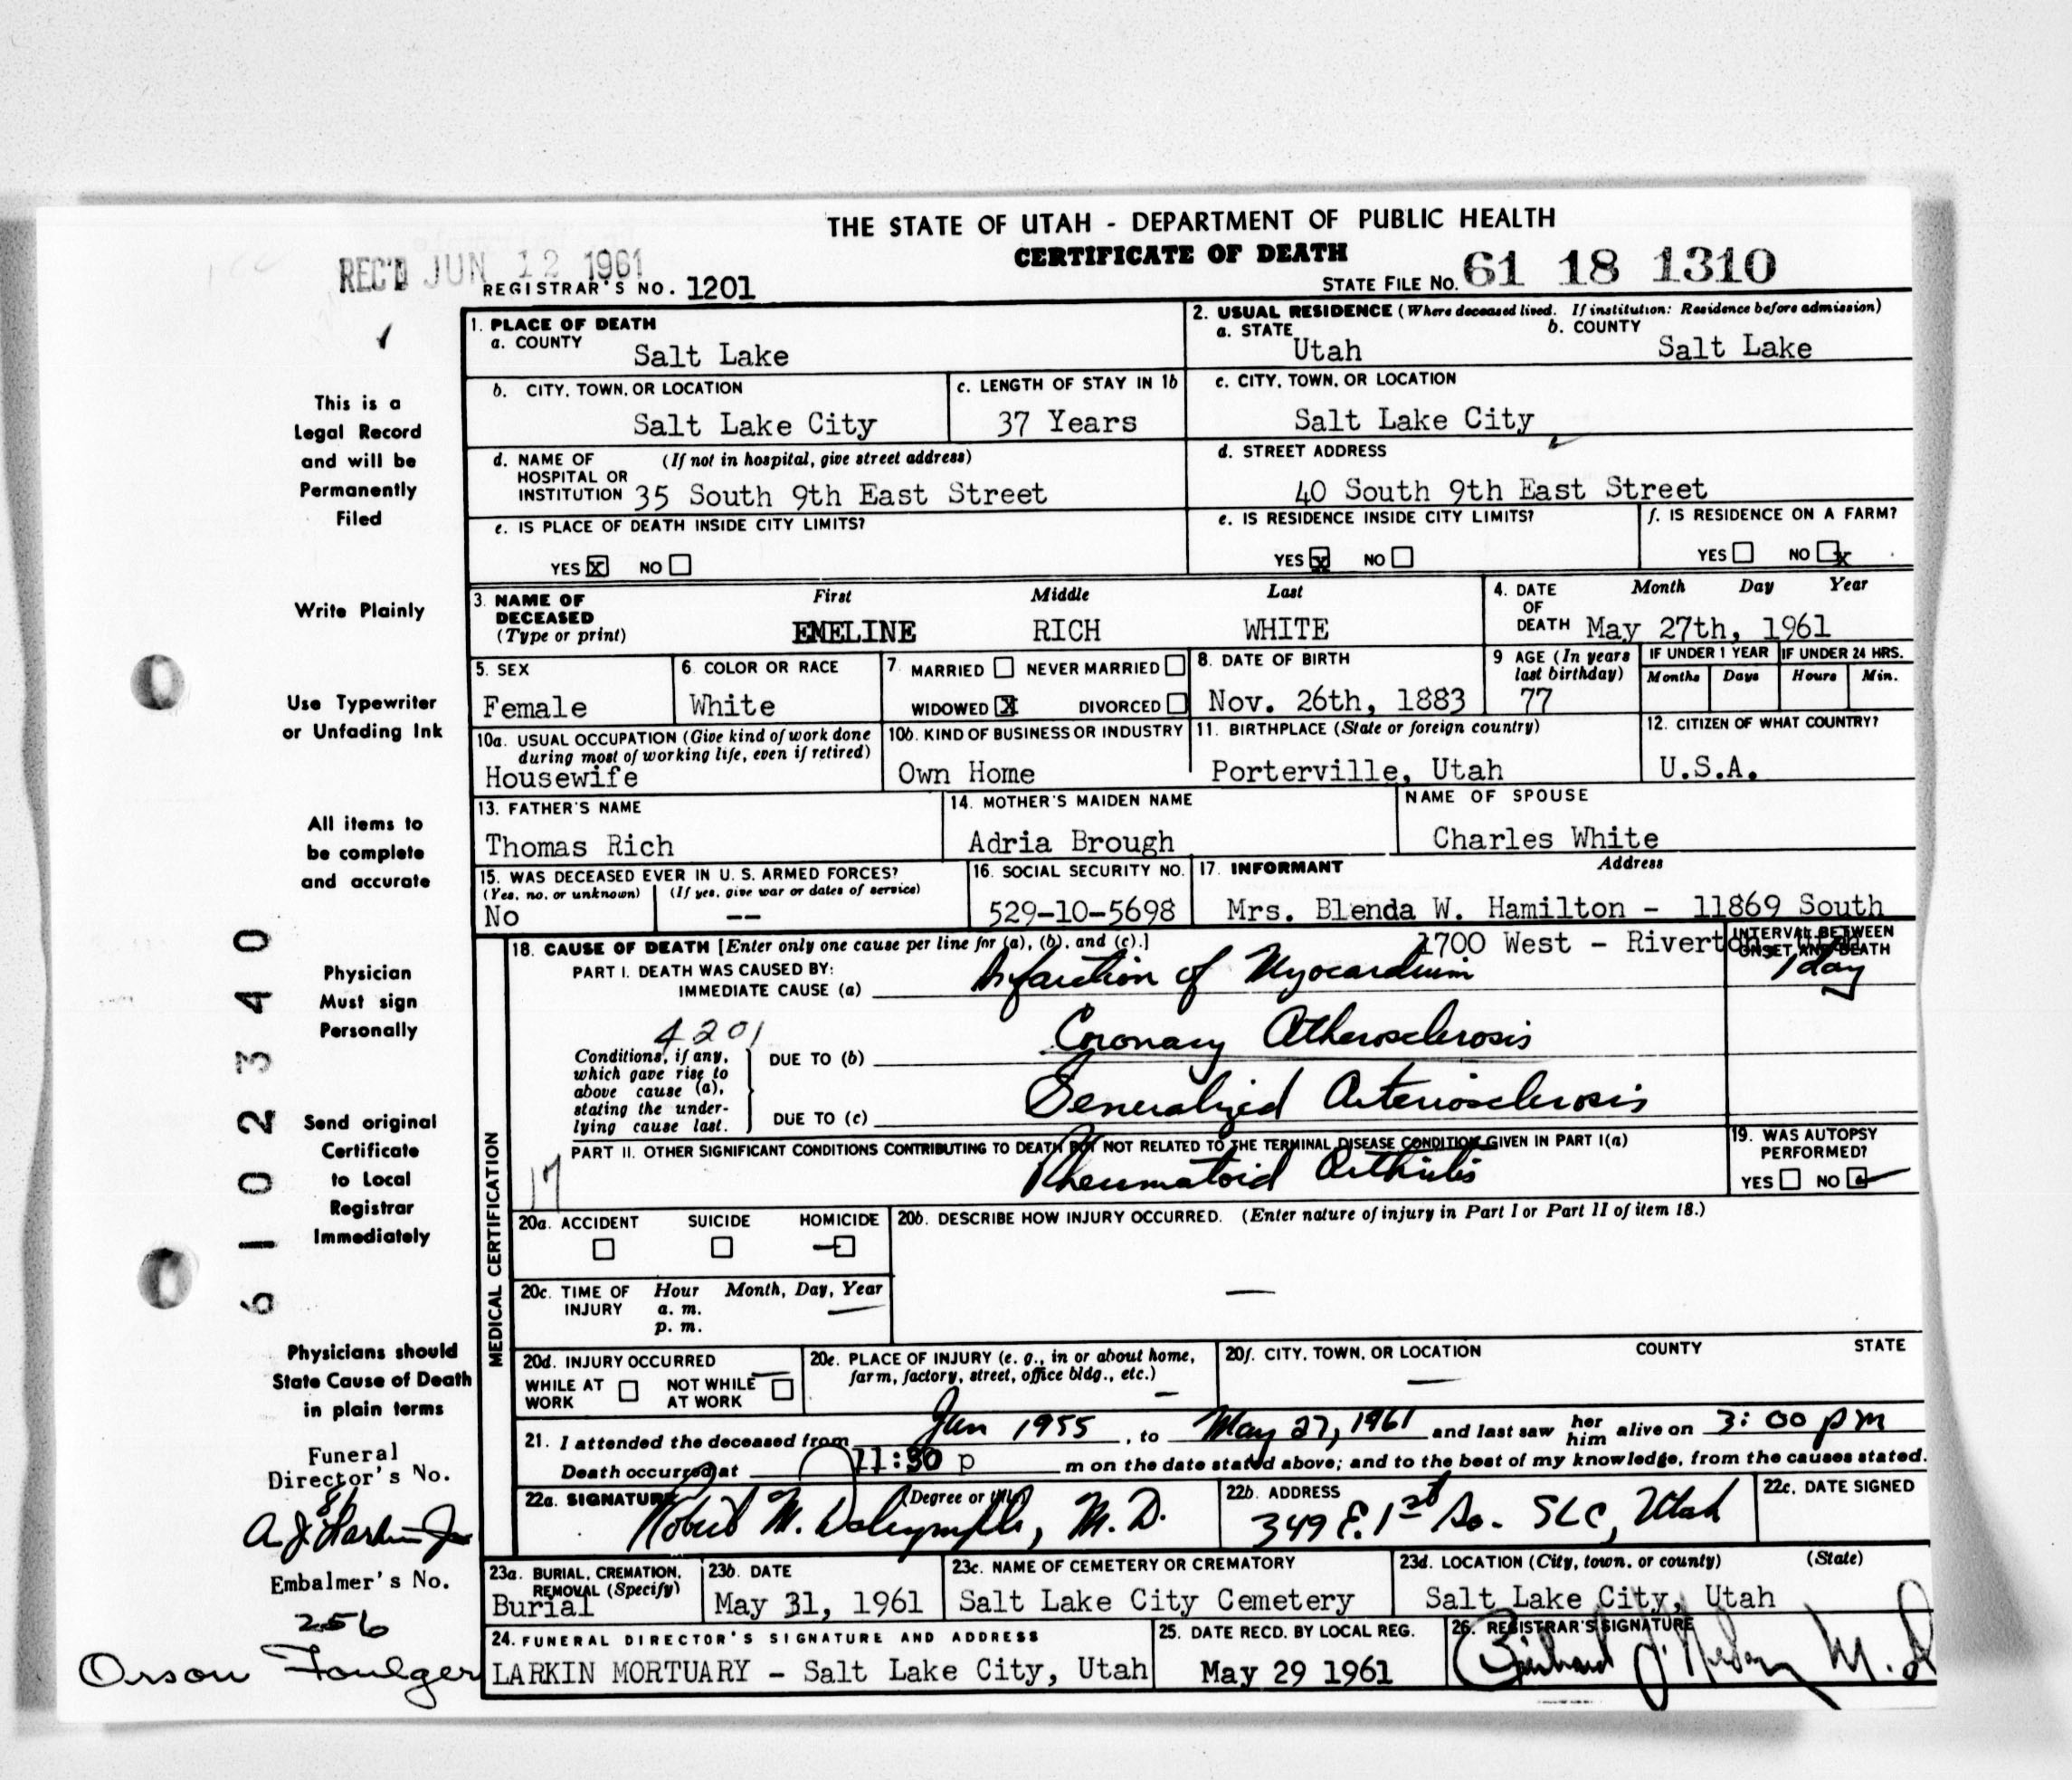 THE STATE OF UTAH - DEPARTMENT OF PUBLIC HEALTH
CERTIFICATE OF DEATH
REC'D JUN 12 1961
REGISTRAR'S NO. 1201
STATE FILE NO. 61 18 1310
1. PLACE OF DEATH
a. COUNTY
Salt Lake
2. USUAL RESIDENCE (Where deceased lived. If institution: Residence before admission)
a. STATE
Utah
b. COUNTY
Salt Lake
b. CITY, TOWN, OR LOCATION
Salt Lake City
c. LENGTH OF STAY IN 1b
37 Years
c. CITY, TOWN, OR LOCATION
Salt Lake City
d. NAME OF (If not in hospital, give street address)
HOSPITAL OR
INSTITUTION 35 South 9th East Street
d. STREET ADDRESS
40 South 9th East Street
e. IS PLACE OF DEATH INSIDE CITY LIMITS?
YES X NO
e. IS RESIDENCE INSIDE CITY LIMITS?
YES X NO
f. IS RESIDENCE ON A FARM?
YES NO X
3. NAME OF
DECEASED
(Type or print)
First Middle Last
EMELINE RICH WHITE
4. DATE
OF
DEATH
Month Day Year
May 27th, 1961
5. SEX
Female
6. COLOR OR RACE
White
7. MARRIED NEVER MARRIED
WIDOWED X DIVORCED
8. DATE OF BIRTH
Nov. 26th, 1883
9 AGE (In years
last birthday)
77
IF UNDER 1 YEAR
Months Days
IF UNDER 24 HRS.
Hours Min.
10a. USUAL OCCUPATION (Give kind of work done
during most of working life, even if retired)
Housewife
10b. KIND OF BUSINESS OR INDUSTRY
Own Home
11. BIRTHPLACE (State or foreign country)
Porterville, Utah
12. CITIZEN OF WHAT COUNTRY?
U.S.A.
13. FATHER'S NAME
Thomas Rich
14. MOTHER'S MAIDEN NAME
Adria Brough
NAME OF SPOUSE
Charles White
15. WAS DECEASED EVER IN U. S. ARMED FORCES?
(Yes, no, or unknown) (If yes, give war or dates of service)
No --
16. SOCIAL SECURITY NO.
529-10-5698
17. INFORMANT Address
Mrs. Blenda W. Hamilton - 11869 South
1700 West - Riverton, Utah
MEDICAL CERTIFICATION
18. CAUSE OF DEATH [Enter only one cause per line for (a), (b), and (c).]
INTERVAL BETWEEN
ONSET AND DEATH
PART I. DEATH WAS CAUSED BY:
IMMEDIATE CAUSE (a) Infarction of Myocardium 1 day
4201
Conditions, if any,
which gave rise to
above cause (a),
stating the under-
lying cause last.
DUE TO (b) Coronary Atherosclerosis
DUE TO (c) Generalized Arteriosclerosis
PART II. OTHER SIGNIFICANT CONDITIONS CONTRIBUTING TO DEATH BUT NOT RELATED TO THE TERMINAL DISEASE CONDITION GIVEN IN PART I(a)
17
Rheumatoid Arthritis
19. WAS AUTOPSY
PERFORMED?
YES NO
20a. ACCIDENT SUICIDE HOMICIDE
20b. DESCRIBE HOW INJURY OCCURRED. (Enter nature of injury in Part I or Part II of item 18.)
20c. TIME OF Hour Month, Day, Year
INJURY a. m.
p. m.
20d. INJURY OCCURRED
WHILE AT
WORK
NOT WHILE
AT WORK
20e. PLACE OF INJURY (e. g., in or about home,
farm, factory, street, office bldg., etc.)
20f. CITY, TOWN, OR LOCATION COUNTY STATE
21. I attended the deceased from Jan 1955, to May 27, 1961 and last saw her him alive on 3:00 pm
Death occurred at 11:30 p m on the date stated above; and to the best of my knowledge, from the causes stated.
22a. SIGNATURE (Degree or title)
Robert M. Dalrymple, M. D.
22b. ADDRESS
349 E. 1st So. SLC, Utah
22c. DATE SIGNED
23a. BURIAL, CREMATION,
REMOVAL (Specify)
Burial
23b. DATE
May 31, 1961
23c. NAME OF CEMETERY OR CREMATORY
Salt Lake City Cemetery
23d. LOCATION (City, town, or county) (State)
Salt Lake City, Utah
24. FUNERAL DIRECTOR'S SIGNATURE AND ADDRESS
LARKIN MORTUARY - Salt Lake City, Utah
25. DATE RECD. BY LOCAL REG.
May 29 1961
26. REGISTRAR'S SIGNATURE
M.D
This is a
Legal Record
and will be
Permanently
Filed
Write Plainly
Use Typewriter
or Unfading Ink
All items to
be complete
and accurate
Physician
Must sign
Personally
Send original
Certificate
to Local
Registrar
Immediately
Physicians should
State Cause of Death
in plain terms
Funeral
Director's No.
A. J. Larkin Jr
Embalmer's No.
256
Orson Foulger
6102340